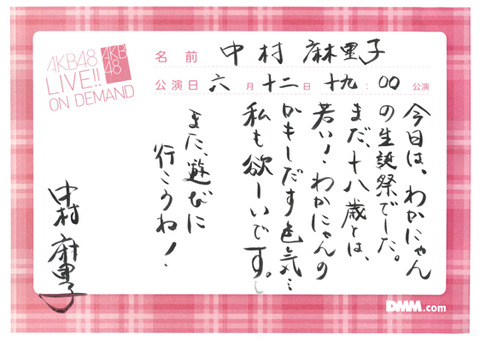 AKB48
LIVE!!
ON DEMAND
AKB
48
名前 中村 麻里子
公演日 六月十二日 十九:00 公演
今日は、わかにゃん
の生誕祭でした。
まだ、十八歳とは、
若い!わかにゃんの
かもしだす色気…
私も欲しいです。
また、遊びに
行こうね!
中村麻里子
DMM.com